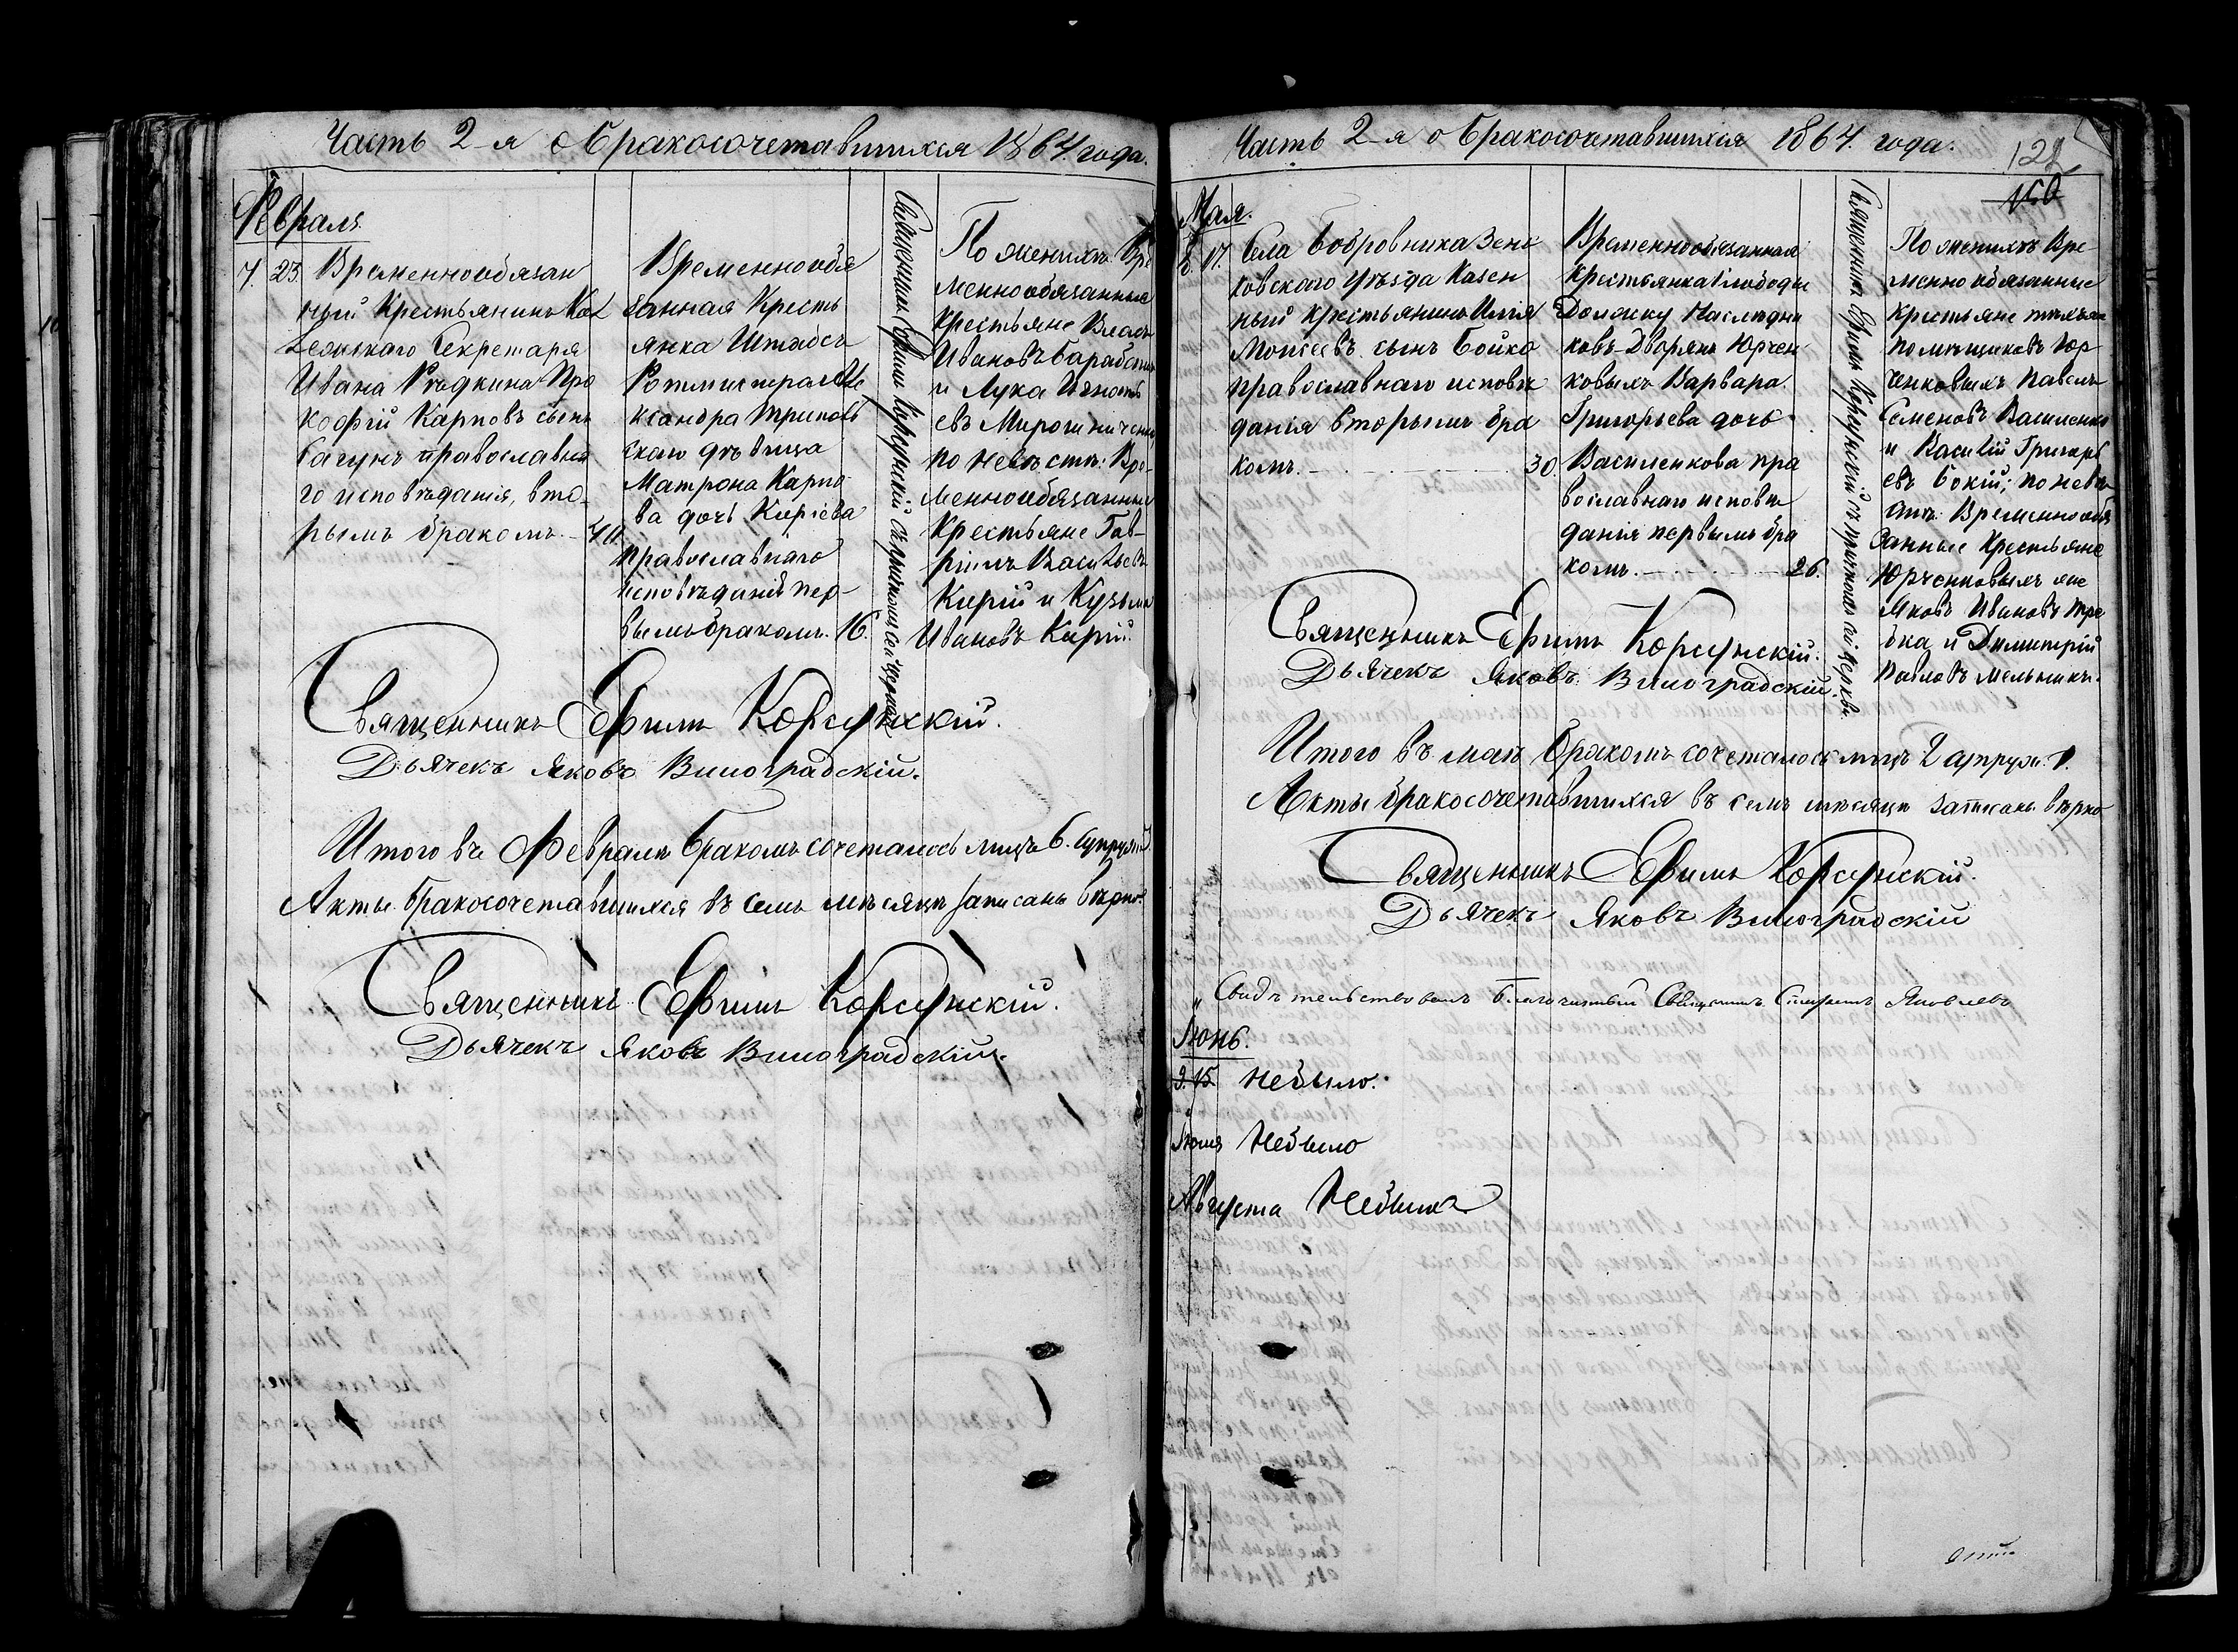 Часть 2-я о бракосочетавшихся 1864. года.
Февраль
7. 23. Временнообязан
ный Крестьянинъ Кол
лежскаго Секретаря
Ивана Рѣдкина Про
кофій Карповъ сынъ
православна
го исповѣданія, вто-
рымъ бракомъ. – 40.
Временнообя
занная Кресть
янка Штабсъ
Ротмистра Але
ксандра
скаго дѣвица
Матрона Карпо
ва дочь Киріева
православнаго
исповѣданія пер-
вымъ бракомъ. 16.
Священникъ Ефимъ Корсунскій съ причтомъ сей церкви
По женихѣ Вре
меннообязанные
Крестьяне Власъ
Ивановъ
и Лука Игнать
евъ Мирошниченко
по невѣстѣ: Вре-
меннообязанные
Крестьяне Гав-
рiилъ Васильевъ
Кирій и Кузьма
Ивановъ Кирій.
Священникъ Ефимъ Корсунскій.
Дьячекъ Яковъ Виноградскій.
Итого въ Февралѣ бракомъ сочеталось лицъ 6.
Акты бракосочетавшихся въ семъ мѣсяцѣ записаны вѣрно.
Священникъ Ефимъ Корсунскій.
Дьячекъ Яковъ Виноградскій.
Часть 2-я о бракосочетавшихся 1864. года.
122
150
Мая.
8. 17. Села Бобровника Зень
ковскаго уѣзда Казен
ный крестьянинъ Илія
Моисеевъ сынъ Бойко
православнаго исповѣ
данія вторымъ бра
комъ. – 30.
Временнообязанная
крестьянка Слободы
Должку Наслѣдни
ковъ Дворянъ Юрчен
ковыхъ Варвара
Григорьева дочь
Василенкова пра
вославнаго исповѣ
данія первымъ бра
комъ. – 26.
Священникъ Ефимъ Корсунскій съ причтомъ сей церкви
По женихѣ Вре
менно обязанные
крестьяне тѣхъ же
помѣщиковъ Юр
ченковыхъ Павелъ
Семеновъ Василенко
и Василій Григорь
евъ Бокій; по невѣ
стѣ: Временнообя
занные Крестьяне
Юрченковыхъ же
Яковъ Ивановъ
и Димитрій
Павловъ Мельникъ.
Священникъ Ефимъ Корсунскій.
Дьячекъ Яковъ Виноградскій.
Итого въ маѣ бракомъ сочеталось лицъ 2 супруж. 1.
Акты бракосочетавшихся въ семъ мѣсяцѣ записаны вѣрно
Священникъ Ефимъ Корсунскій.
Дьячекъ Яковъ Виноградскій
Свидѣтельствовалъ Благочинный Священникъ Яковлевъ
Іюнь.
Небыло.
Іюля Небыло
Августа Небыло